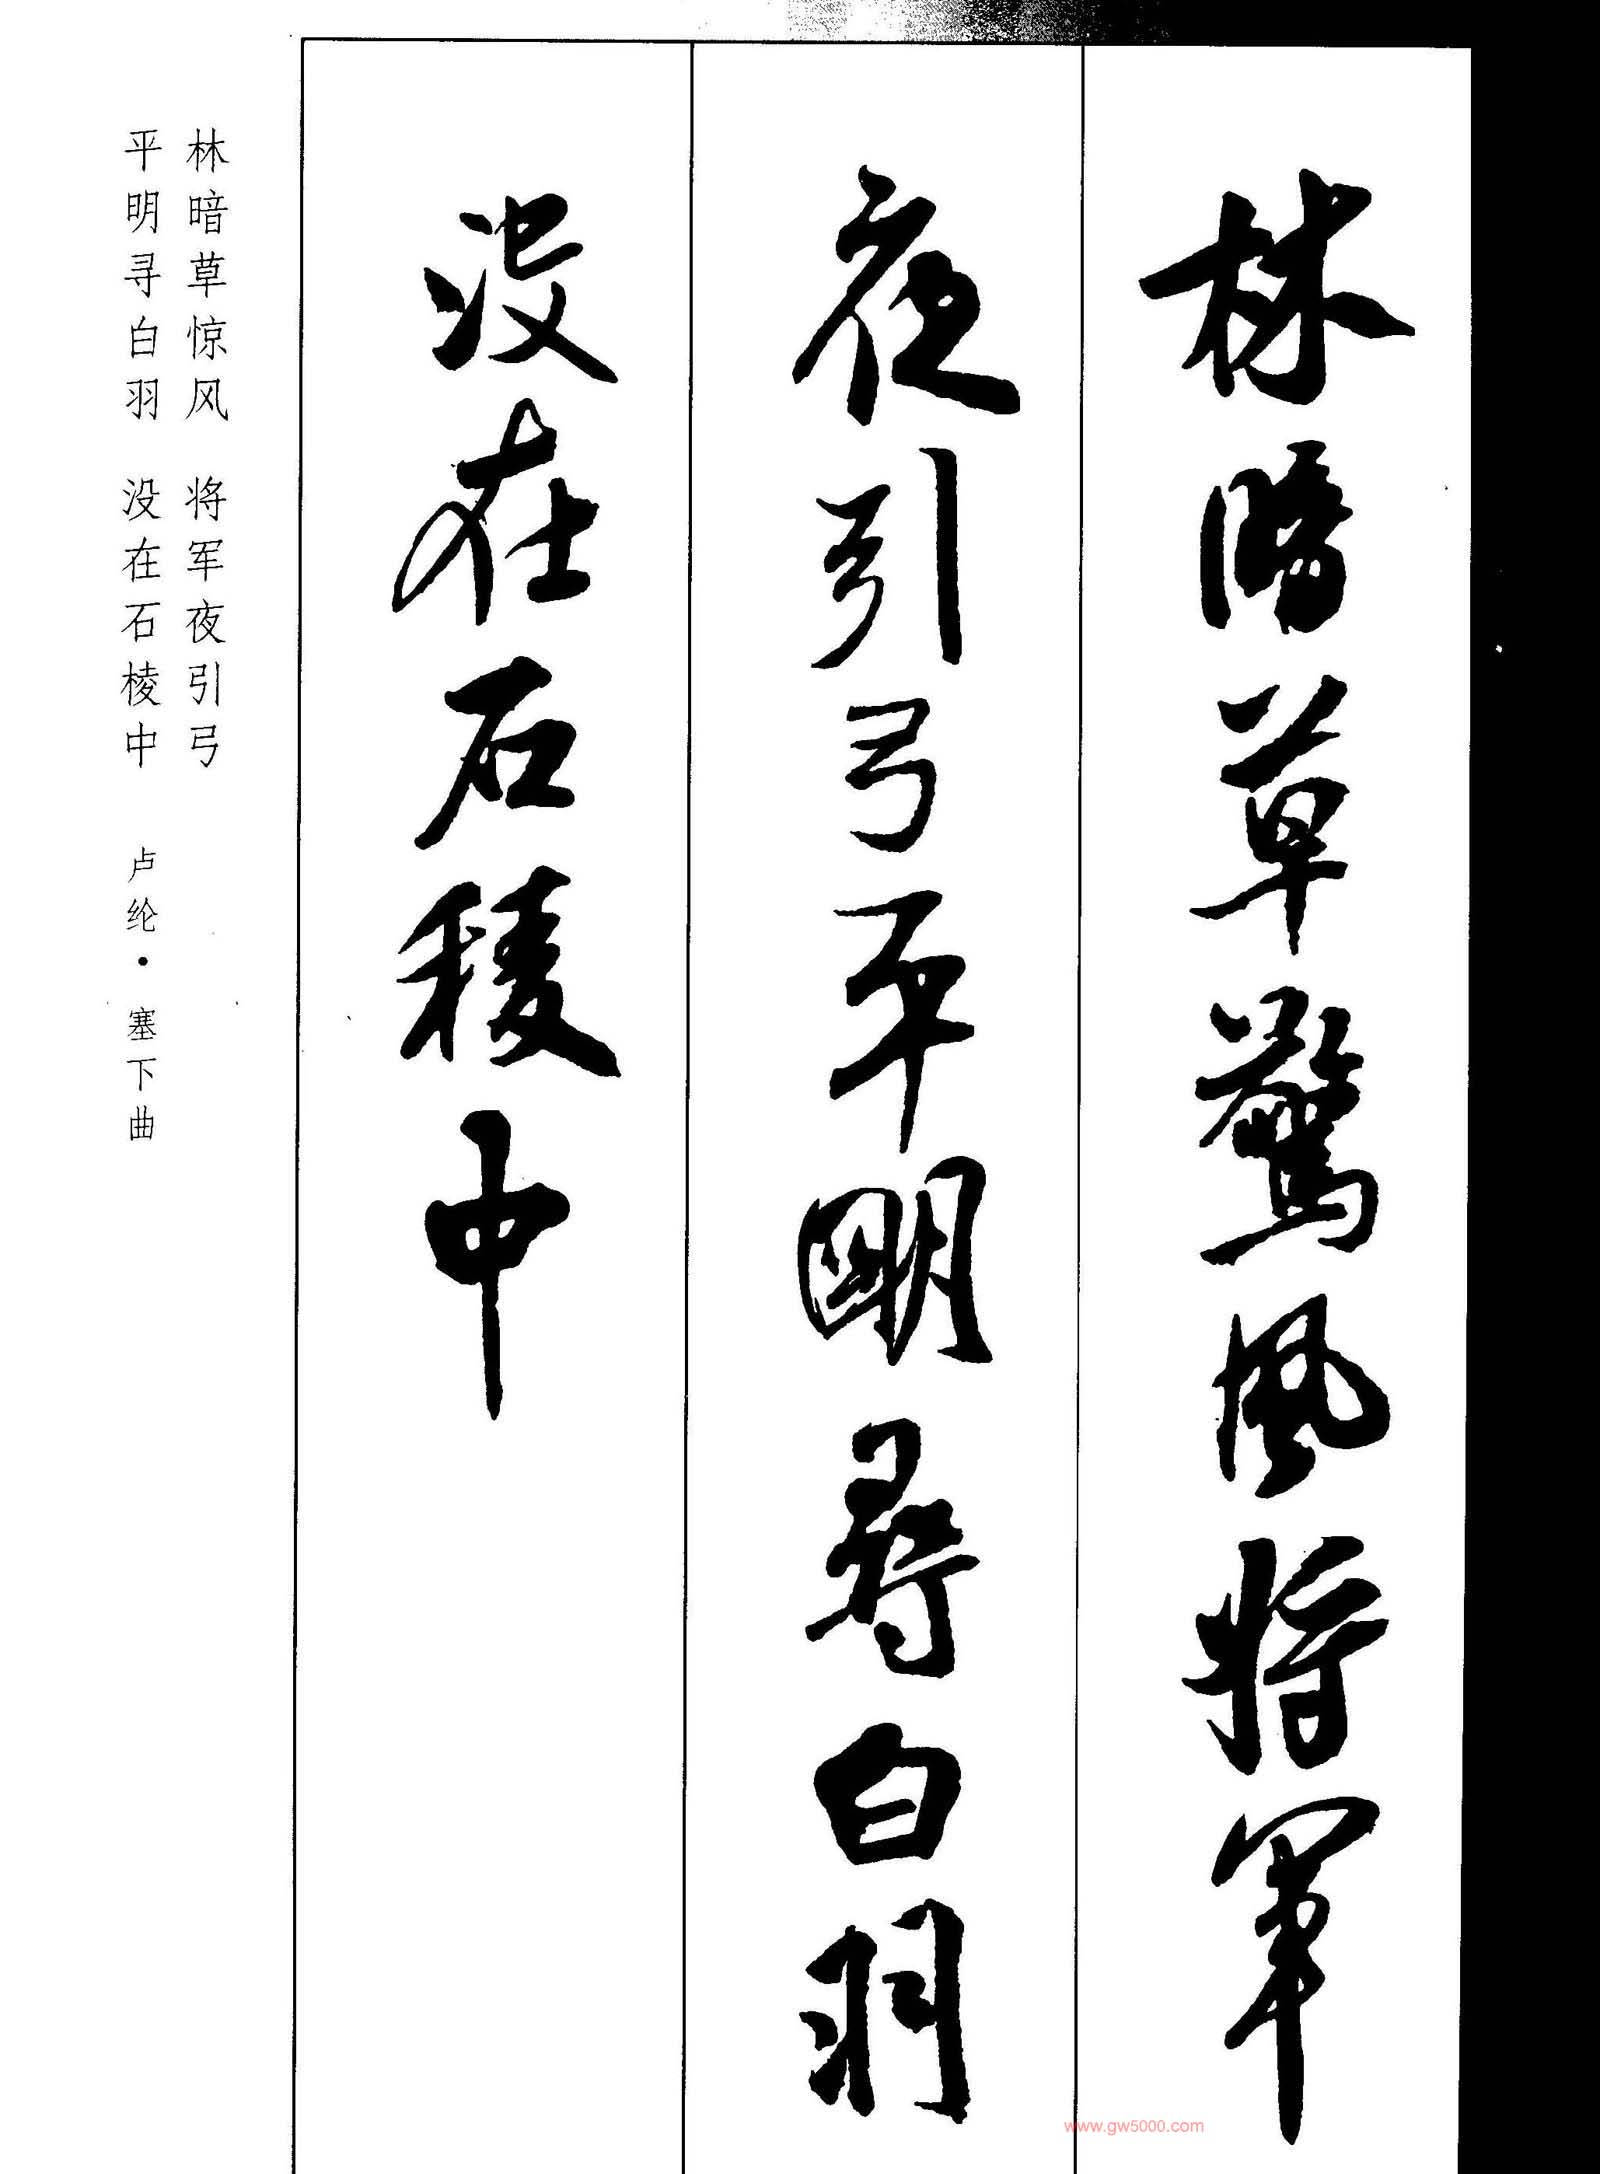 林暗草驚風將軍
夜引弓平明尋白羽
没在石稜中
林暗草惊风 将军夜引弓
平明寻白羽 没在石棱中 卢纶·塞下曲
www.gw5000.com